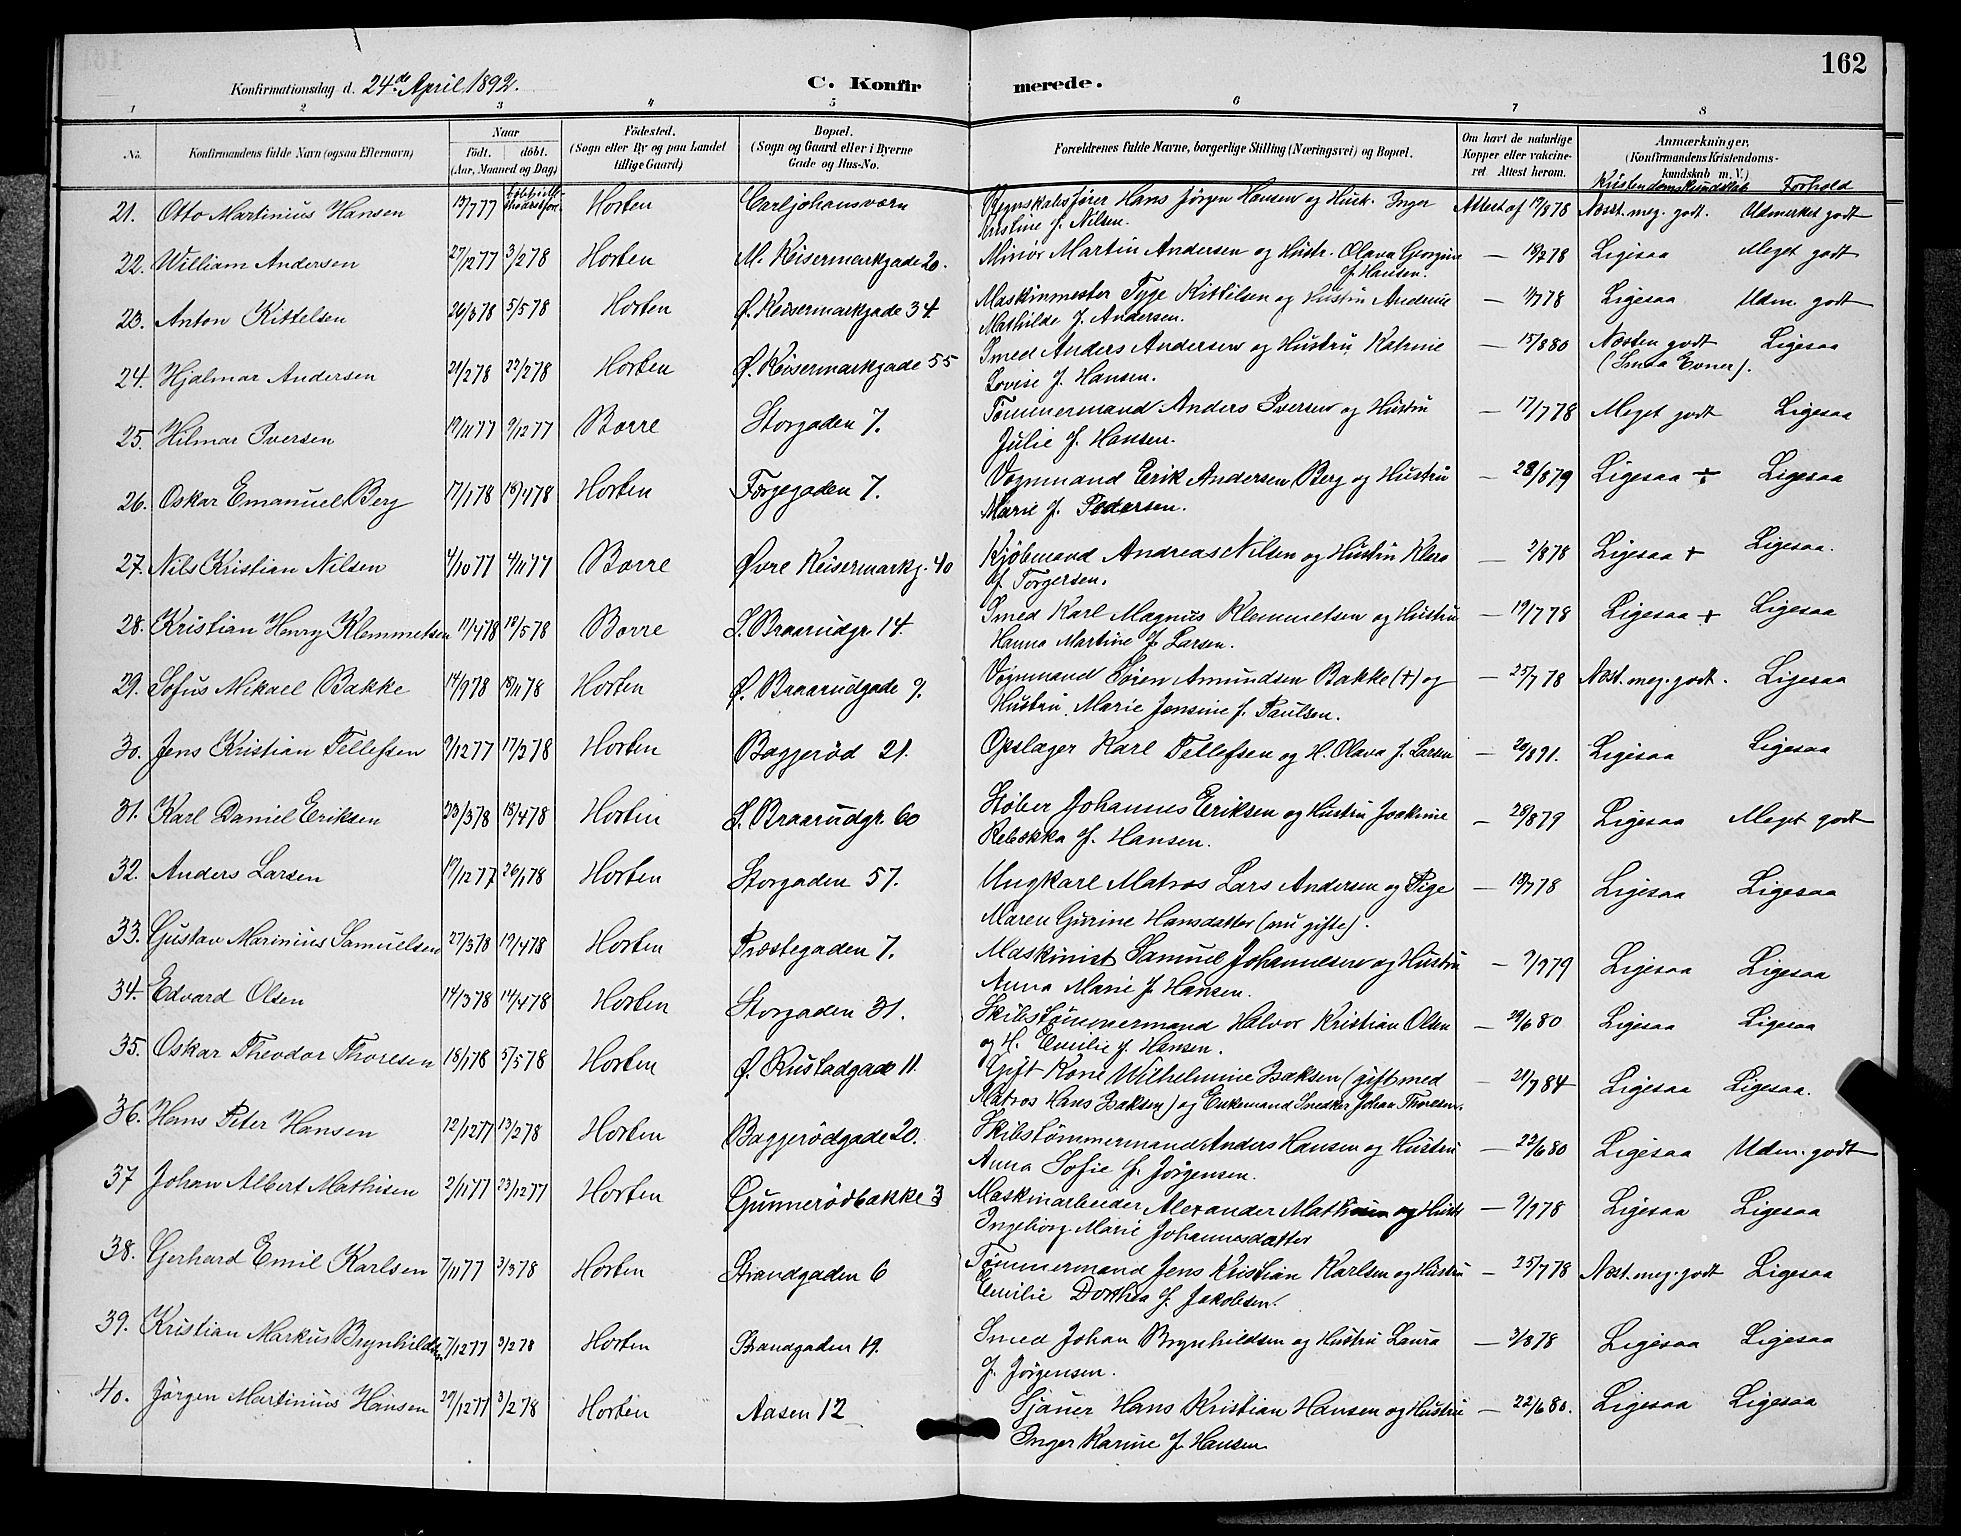 162
Konfirmationsdag d. 24de April 1892.
C. Konfirmerede.
1 2 3 4 5 6 7 8
No. Konfirmandens fulde Navn (ogsaa Efternavn) Naar Födt. döbt. (Aar, Maaned og Dag) Födested. (Sogn eller By og paa Landet tillige Gaard) Bopæl. (Sogn og Gaard eller i Byerne Gade og Hus-No. Forældrenes fulde Navne, borgerlige Stilling (Næringsvei) og Bopæl. Om havt de naturlige Kopper eller vakcineret Attest herom. Anmærkninger, (Konfirmandens Kristendomskundskab m. V.)
Kristendomskundskab Forhold
21. Otto Martinius Hansen 19/7 77 Horten Carljohansværn Regnskabsfører Hans Jörgen Hansen og Hust. Inger Attest af 19/8 78 Næst. meg. godt. Udmerket godt
Kristine f. Nilsen.
22. William Andersen 27/12 77 3/2 78 Horten M. Keisermarkgade 20. Minör Martin Andersen og Hustr. Olava Georgine — 18/7 78 Ligesaa Meget godt
f. Hansen.
23. Anton Kittelsen 26/3 78 5/5 78 Horten Ø. Keisermarkgade 34. Maskinmester Tyge Kittilsen og Hustru Andrine Ligesaa Udm. godt
Mathilde f. Andersen.
24. Hjalmar Andersen 21/2 78 22/2 78 Horten Ø. Keisermarkgade 55 Smed Anders Andersen og Hustru Katrine — 15/8 80 Næsten godt Ligesaa
Lovise f. Hansen. (Smaa Evner).
25. Hilmar Iversen 19/11 77 9/12 77 Borre Storgaden 7. Tømmermand Anders Iversen og Hustru — 17/7 78 Meget godt Ligesaa
Julie f. Hansen.
26. Oskar Emanuel Berg 17/1 78 18/4 78 Horten Torgegaden 7. Vognmand Erik Andersen Berg og Hustru — 28/8 79 Ligesaa + Ligesaa
Marie f. Pedersen.
27. Nils Kristian Nilsen 4/10 77 4/11 77 Borre Øvre Keisermarkg. 40 Kjöbmand Andreas Nilsen og Hustru Klara — 2/8 78 Ligesaa + Ligesaa.
af Torgersen.
28. Kristian Henry Klemmetsen 11/4 78 18/5 78 Borre S. Braarudgr 14. Smed Karl Magnus Klemmetsen og Hustru — 19/7 78 Ligesaa + Ligesaa
Hanna Martine f. Larsen.
29. Sofus Mikael Bakke 14/9 78 18/11 78 Horten Ø. Braarudgade 9. Vognmand Sören Amundsen Bakke (+) og — 25/7 78 Næst. meg. godt. Ligesaa
Hustru Marie Jensine f. Paulsen.
30. Jens Kristian Tellefsen 9/12 77 17/3 78 Horten Baggeröd 21. Opslager Karl Tellefsen og H. Olava f. Larsen — 20/8 91. Ligesaa Ligesaa
31. Karl Daniel Eriksen 23/3 78 18/4 78 Horten S. Braarudgr. 60 Støber Johannes Eriksen og Hustru Joakime — 28/8 79 Ligesaa Meget godt
Rebekka f. Hansen.
32. Anders Larsen 17/12 77 26/1 78 Horten Storgaden 57. Ungkarl Matros Lars Andersen og Pige — 18/7 78 Ligesaa Ligesaa
Maren Gurine Hansdatter (nu gifte).
33. Gustav Marinius Samuelsen 27/3 78 19/4 78 Horten Præstegaden 7. Maskinist Samuel Johannesen og Hustru — 9/9 79 Ligesaa Ligesaa
Anna Marie f. Hansen.
34. Edvard Olsen 14/3 78 14/4 78 Horten Storgaden 31. Skibstömmermand Halvor Kristian Olsen — 29/6 80 Ligesaa Ligesaa
og H. Emilie f. Hansen.
35. Oskar Theodor Thoresen 18/1 78 5/5 78 Horten Ø. Rustadgade 11. Gift Kone Wilhelmine Isaksen (gift med — 21/7 84 Ligesaa Ligesaa.
Matros Hans Isaksen) og Enkemand Snedker Johan Thoresen.
36. Hans Peter Hansen 12/12 77 13/2 78 Horten Baggerödgade 20. Skibstömmermand Anders Hansen og Hustru — 23/6 80 Ligesaa Udm. godt
Anna Sofie f. Jörgensen.
37 Johan Albert Mathisen 2/11 77 23/12 77 Horten Gunnerödbakke 3 Maskinarbeider Alexander Mathisen og Hustr — 9/9 78 Ligesaa Ligesaa
Ingeborg Marie Johannesdatter
38. Gerhard Emil Karlsen 7/11 77 3/3 78 Horten Strandgaden 6 Tømmermand Jens Kristian Karlsen og Hustru — 25/7 78 Næst. meg. godt Ligesaa
Emilie Dorthea f. Jakobsen.
39. Kristian Markus Brynhildsen 7/12 77 3/2 78 Horten Strandgaden 19. Smed Johan Brynhildsen og Hustru Laura — 3/8 78 Ligesaa Ligesaa
f. Jörgensen.
40. Jörgen Martinius Hansen 29/12 77 3/2 78 Horten Aasen 12 Sjauer Hans Kristian Hansen og Hustru — 22/6 80. Ligesaa Ligesaa
Inger Karine f. Hansen